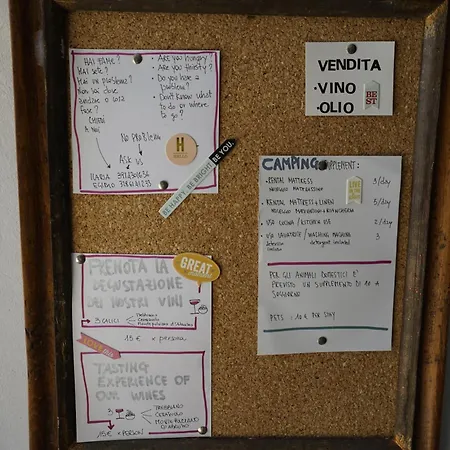 HAI FAME?
HAI SETE?
HAI UN PROBLEMA?
NON SAI DOVE
ANDARE O COSA
FARE?
CHIEDI
A NOI
• ARE YOU HUNGRY
• ARE YOU THIRSTY?
• DO YOU HAVE A
PROBLEM?
• DON'T KNOW WHAT
TO DO OR WHERE
TO GO?
NO PROBLEM
ASK US
H
BE HAPPY. BE BRIGHT. BE YOU.
VENDITA
• VINO
• OLIO
BEST
CAMPING SUPPLEMENT:
• RENTAL MATTRESS 3/day
NOLEGGIO MATERASSINO
• RENTAL MATTRESS + LINEN 5/day
• USO CUCINA / KITCHEN USE 2/day
• USO LAVATRICE / WASHING MACHINE 3
detersivo detergent included
incluso
PER GLI ANIMALI DOMESTICI E'
PREVISTO UN SUPPLEMENTO DI 10 €
SOGGIORNO
PETS : 10 € PER STAY
PRENOTA LA
DEGUSTAZIONE
DEI NOSTRI VINI
GREAT
3 CALICI
Trebbiano
Cerasuolo
Montepulciano d'Abruzzo
15 € x persona
TASTING
EXPERIENCE OF
OUR WINES
3
TREBBIANO
CERASUOLO
MONTEPULCIANO
D'ABRUZZO
15 € x PERSON